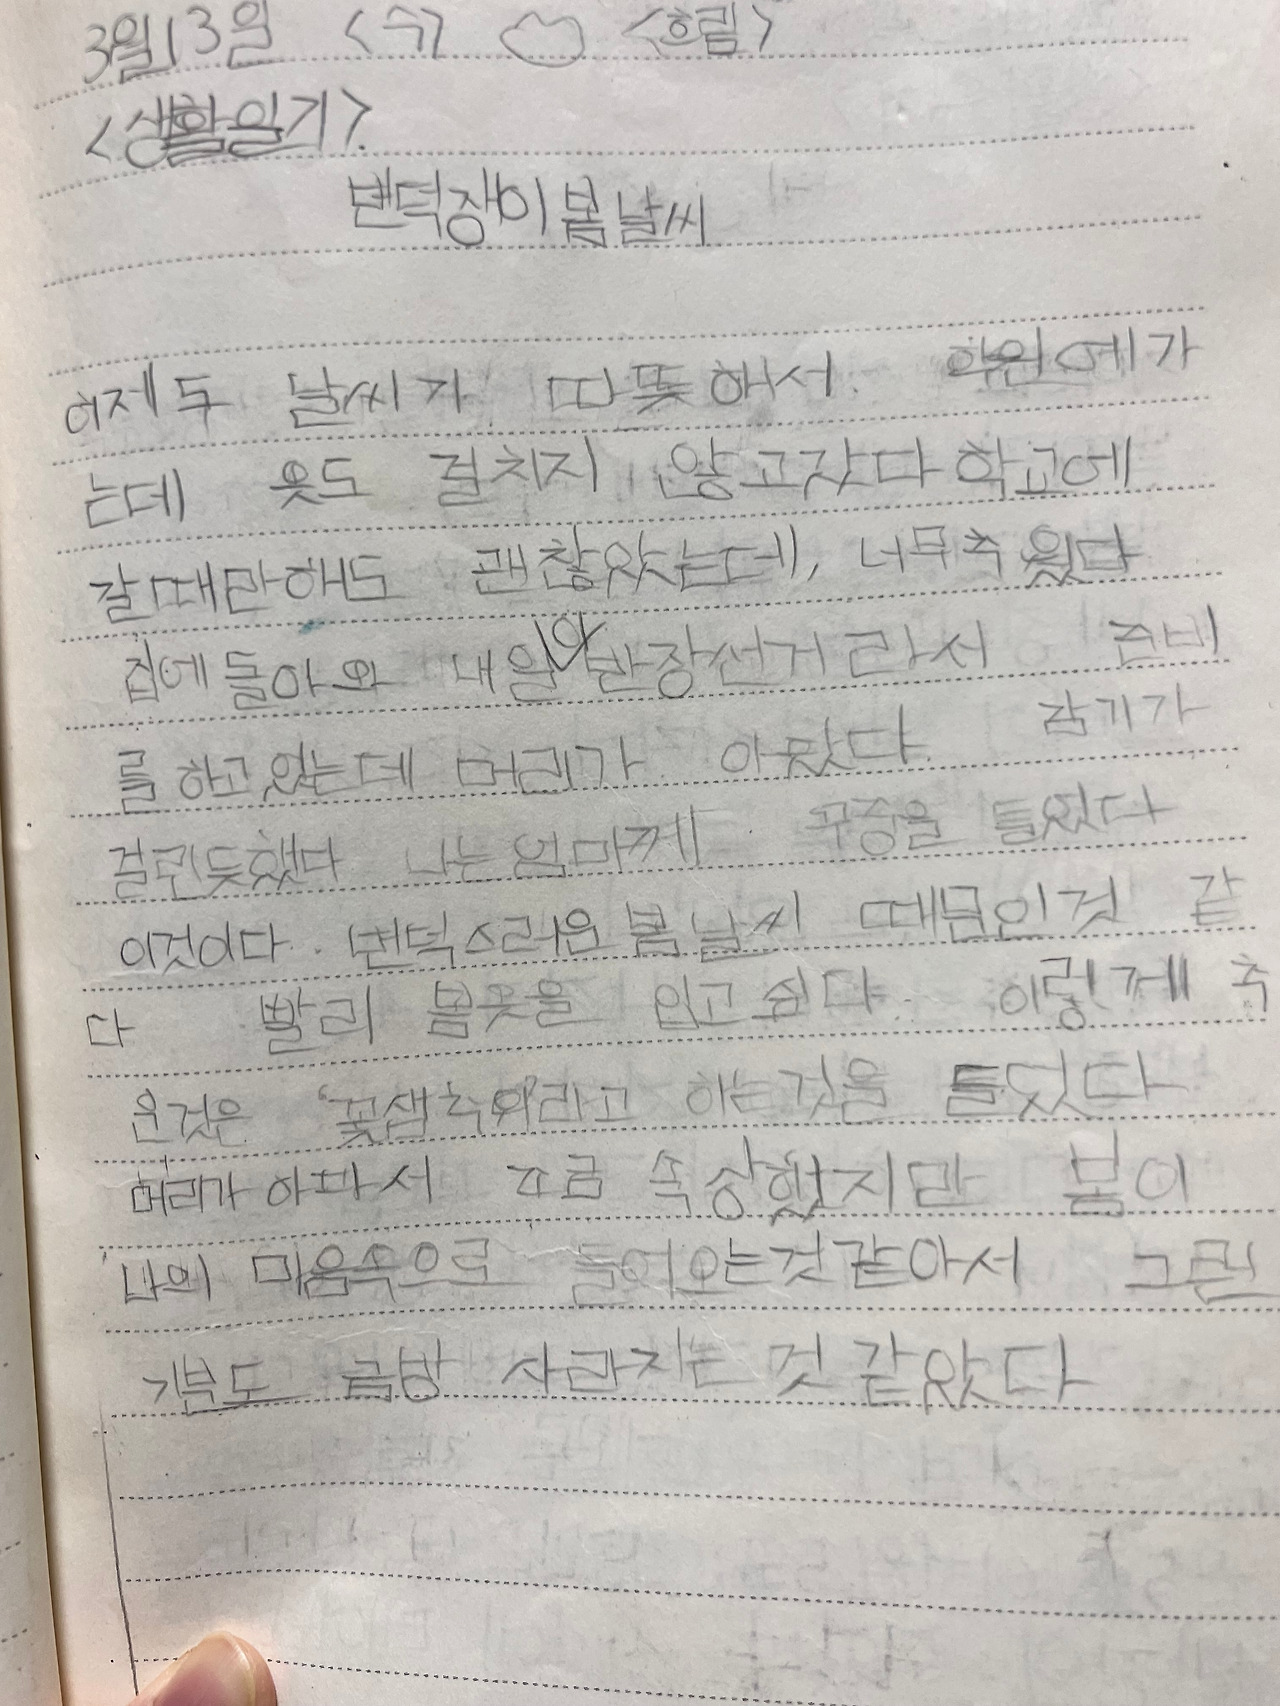 3월13일 <수> <흐림>
<생활일기>.
변덕쟁이 봄 날씨
어제 두 날씨가 따뜻해서. 학원에가
는데 옷도 걸치지 않고갔다 학교에
갈때만해도 괜찮았는데, 너무추웠다
집에돌아와 내일이 반장선거라서 준비
를하고있는데 머리가 아팠다. 감기가
걸린듯했다 나는엄마께 꾸중을 들었다
이것이다. 변덕스러운봄날씨 때문인것 같
다 빨리 봄옷을 입고싶다. 이렇게 추
운것은 '꽃샘추위'라고 하는것을 들었다
머리가 아파서 조금 속상했지만 봄이
나의 마음속으로 들어오는것같아서 그런
기분도 금방 사라지는 것 같았다